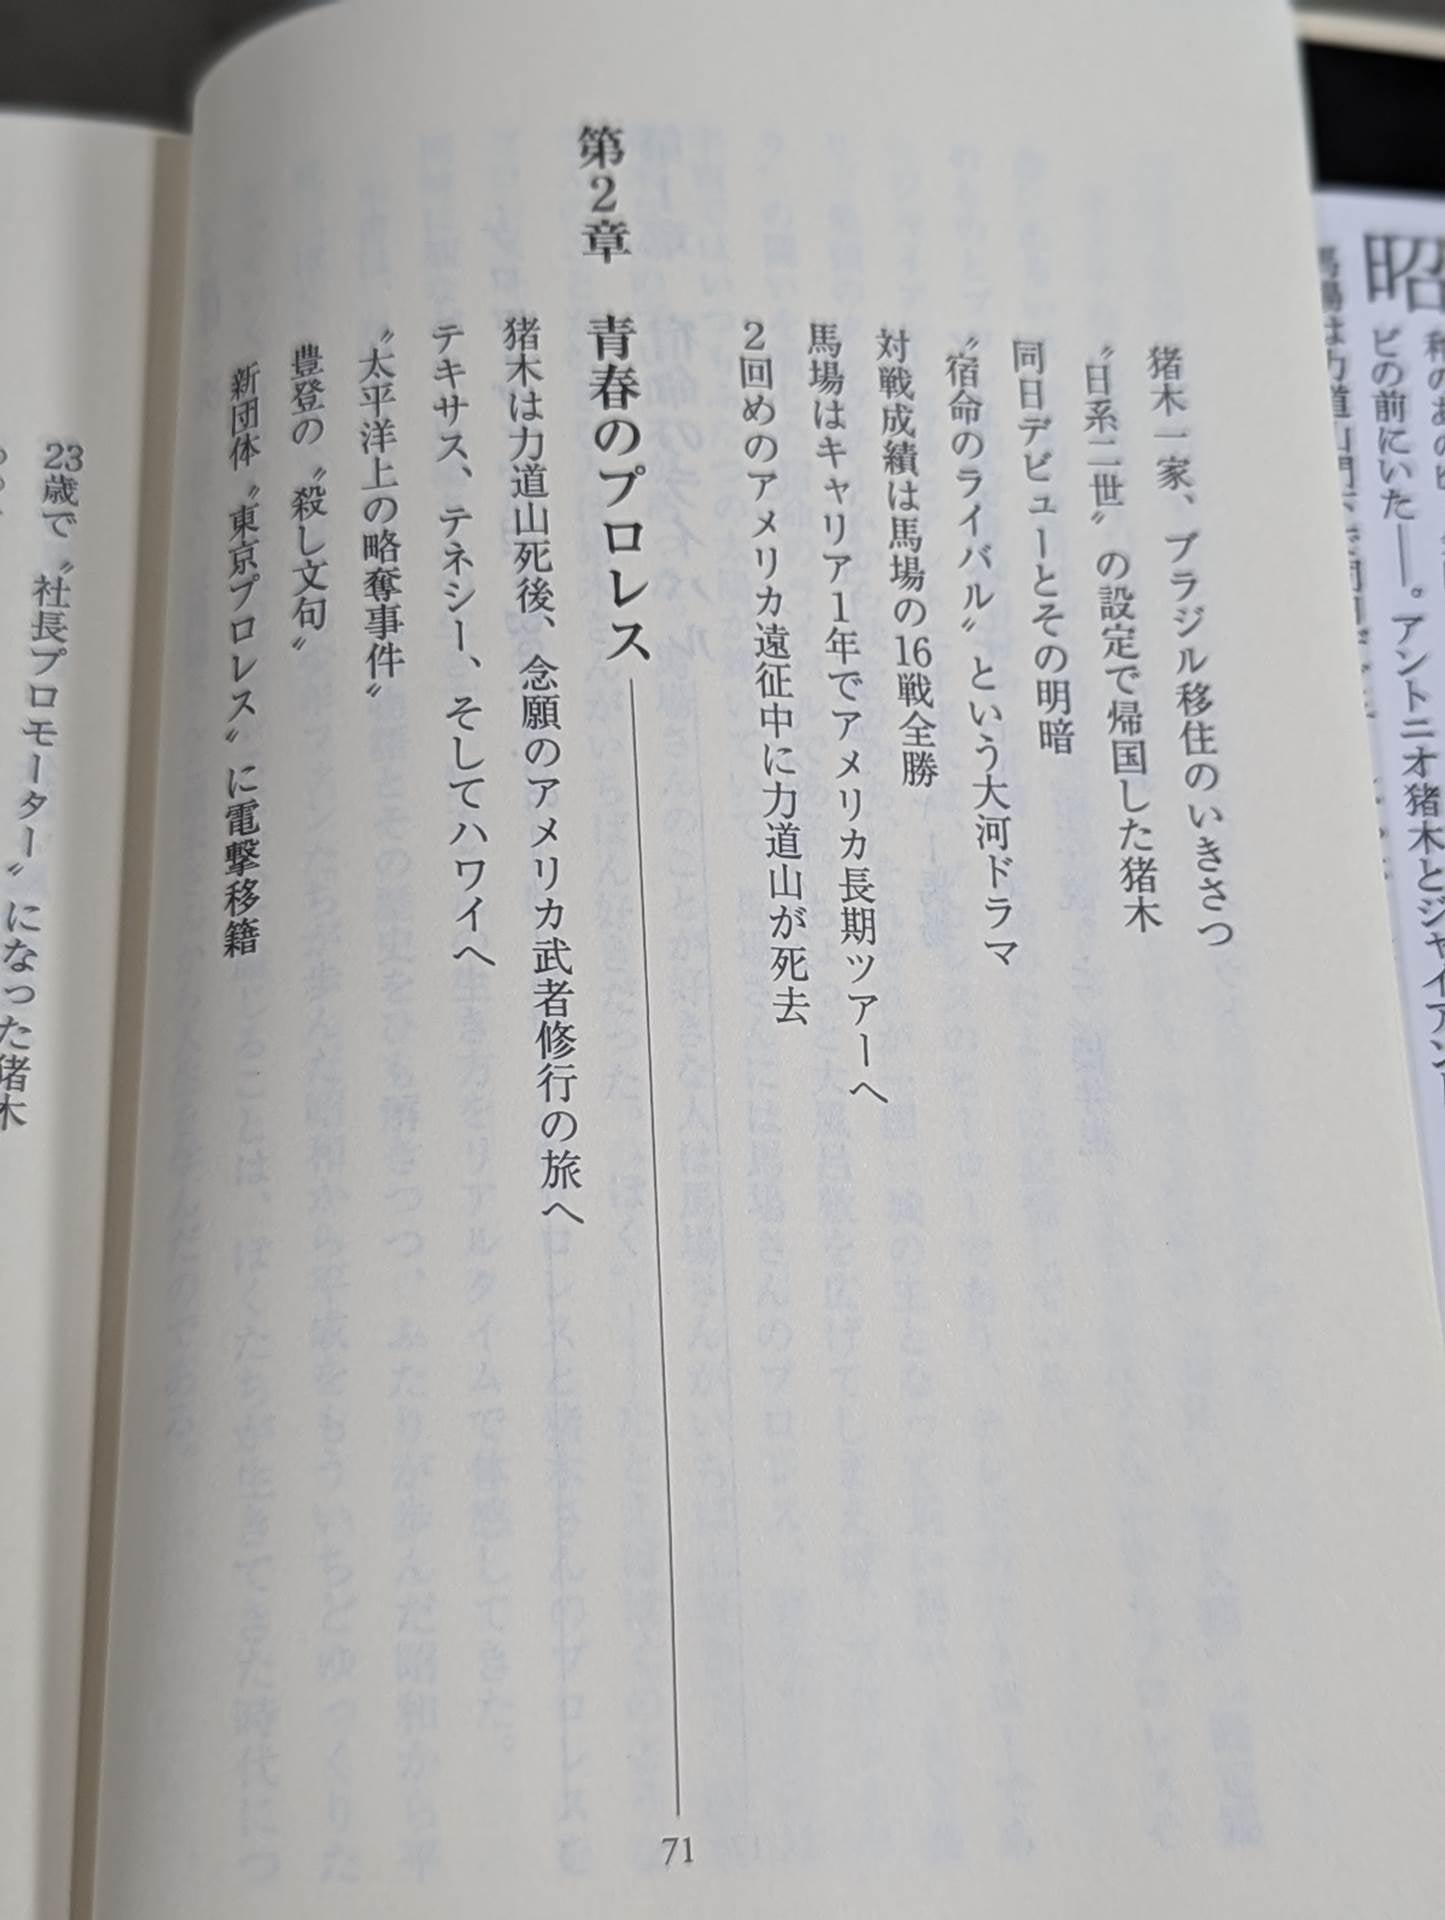 昭
ビの前にいた――。アントニオ猪木とジャイアン
猪木一家、ブラジル移住のいきさつ
〝日系二世〟の設定で帰国した猪木
同日デビューとその明暗
〝宿命のライバル〟という大河ドラマ
対戦成績は馬場の16戦全勝
馬場はキャリア1年でアメリカ長期ツアーへ
2回めのアメリカ遠征中に力道山が死去
第2章 青春のプロレス 71
猪木は力道山死後、念願のアメリカ武者修行の旅へ
テキサス、テネシー、そしてハワイへ
〝太平洋上の略奪事件〟
豊登の〝殺し文句〟
新団体〝東京プロレス〟に電撃移籍
23歳で〝社長プロモーター〟になった猪木